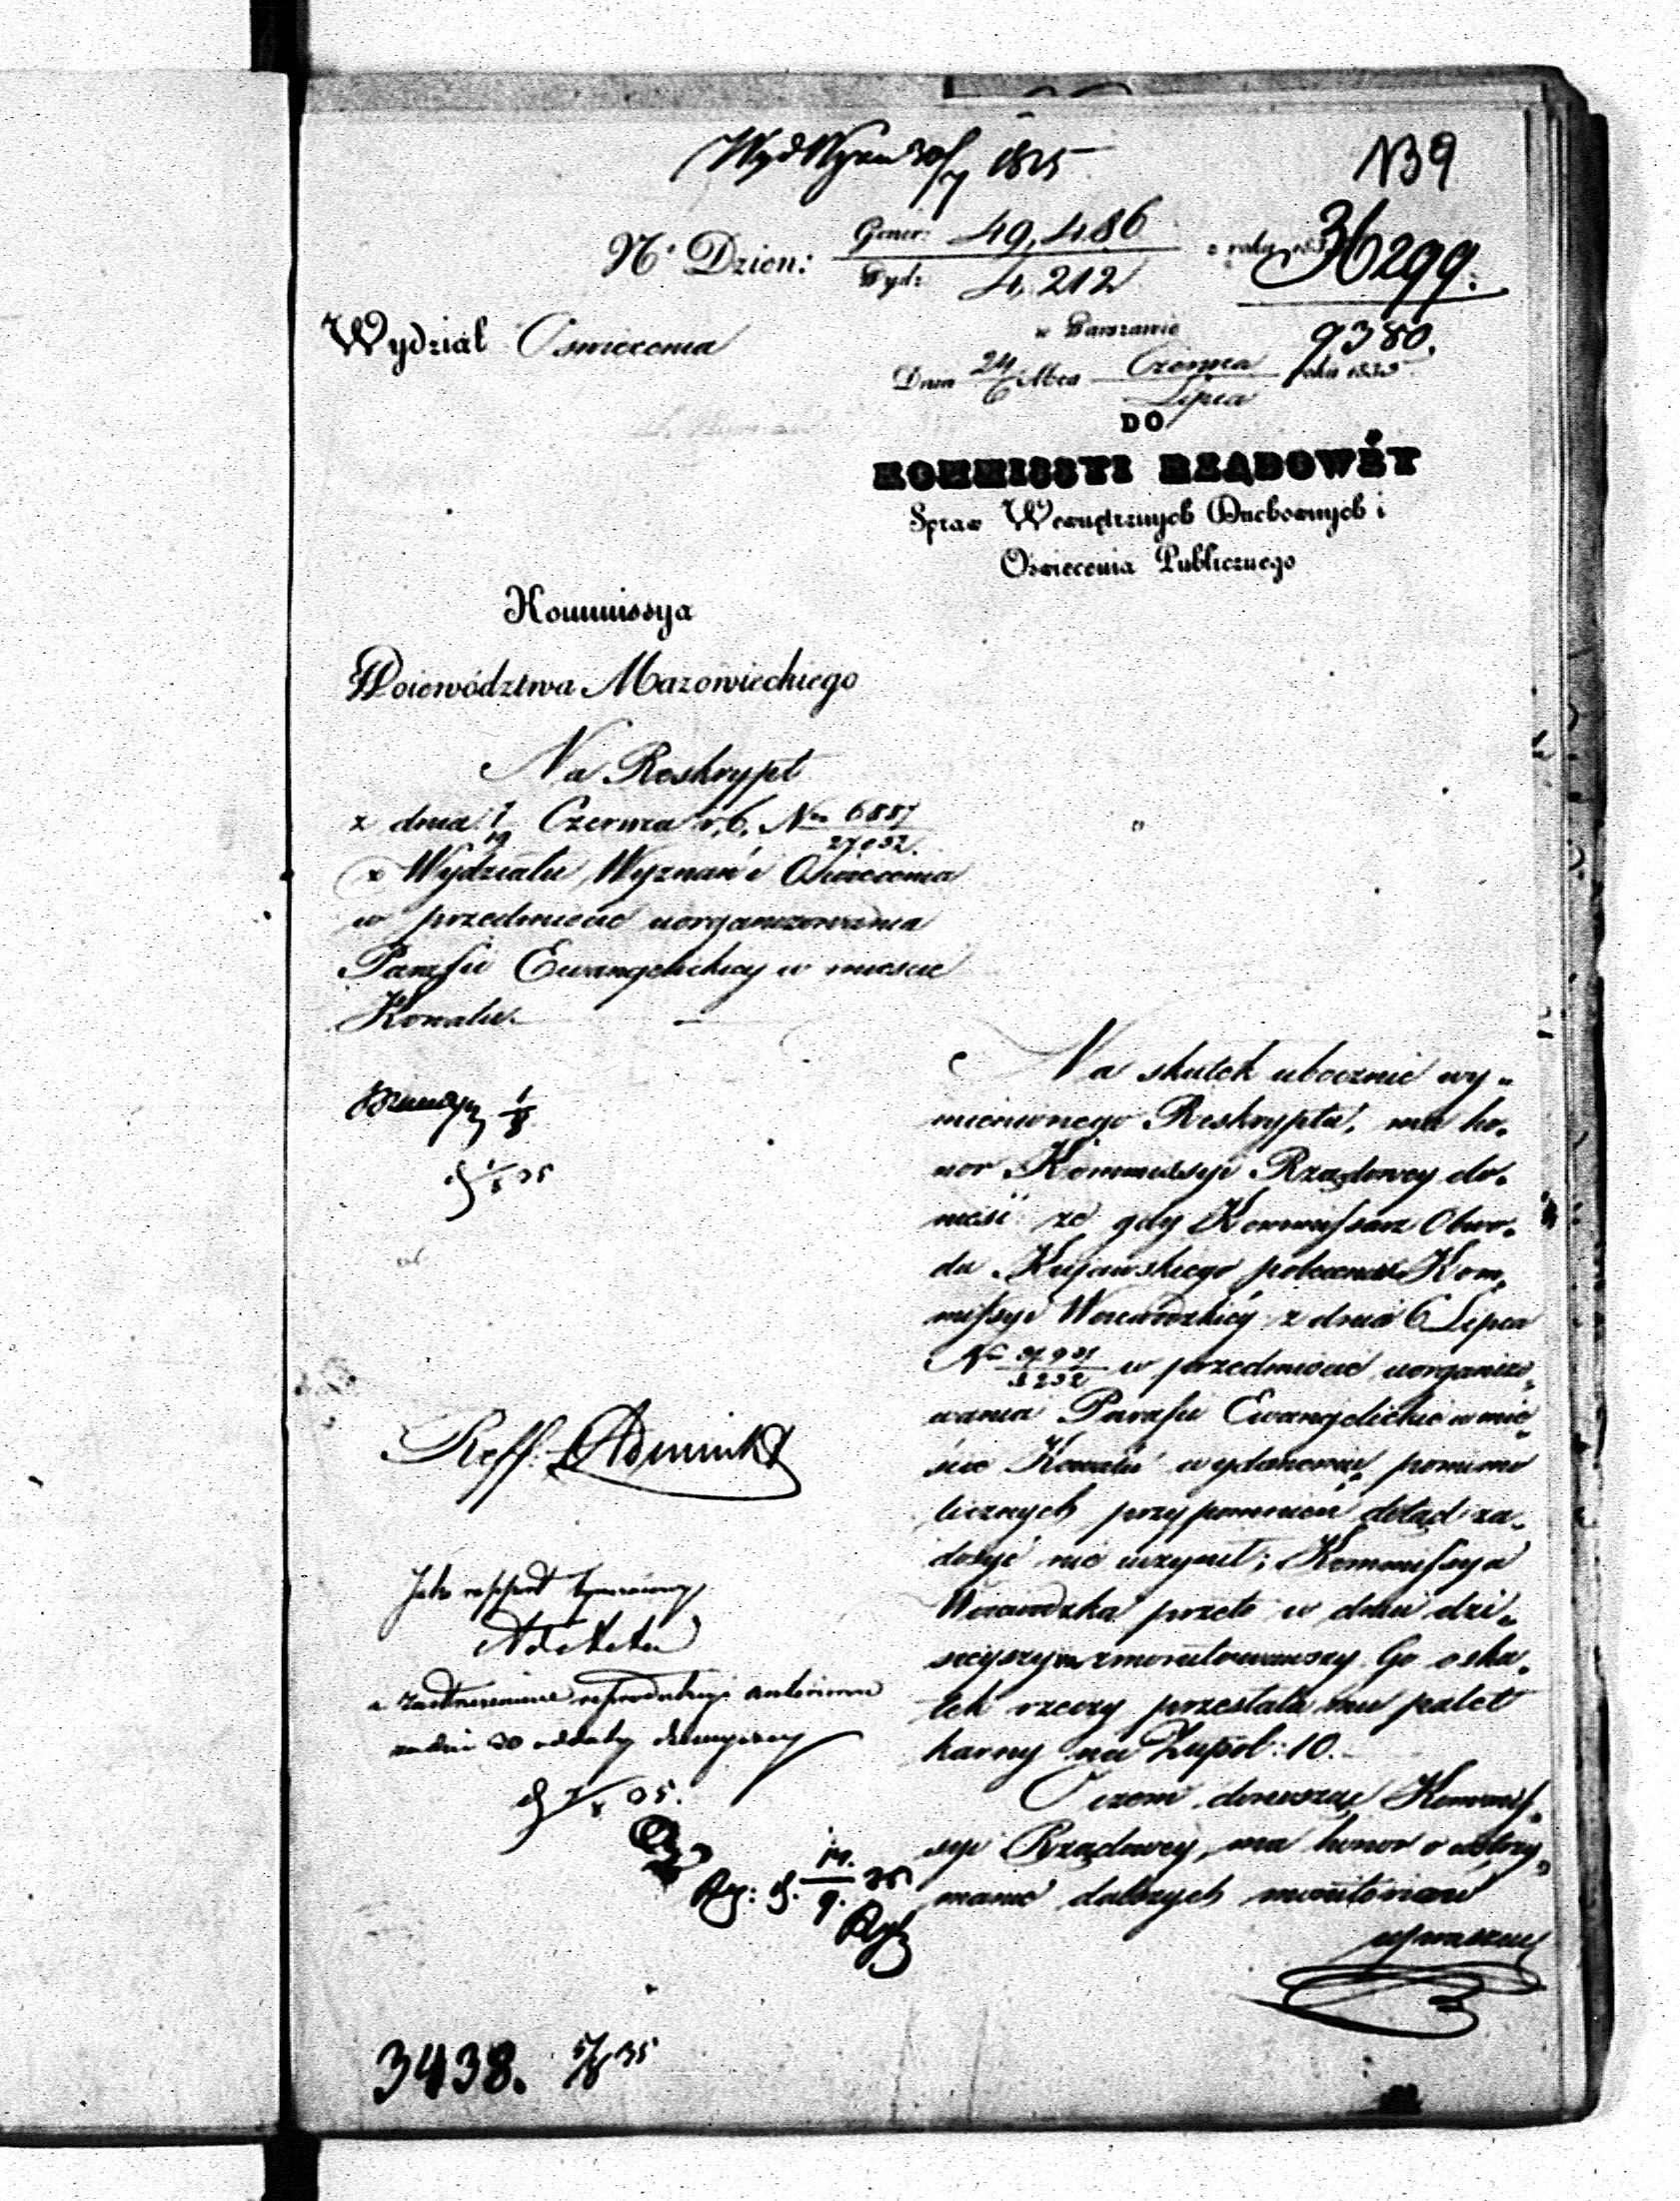 WydWyzn 30/7 1835
N39
N° Dzien: Gener: 49,486 z roku 183
Wydz: 4,212
36299.
9380.
Wydział Oswiecenia
w Warszawie
Dnia 24/6 Mca Czerwca/Lipca roku 1835
DO
KOMMISSYI RZĄDOWÉY
Spraw Wewnętrznych Duchownych i
Oswiecenia Publicznego
Kommissya
Woiewództwa Mazowieckiego
Na Reskrypt
z dnia 7/19 Czerwca r, b, Nro 6887/27052.
z Wydziału Wyznań i Oświecenia
w przedmiocie uorganizowania
Parafii Ewangelickiey w miescie
Kowalu.
Na skutek ubocznie wy-
mienionego Reskryptu, ma ho-
nor Kommissyi Rządowey do-
nieść że gdy Kommissarz Obwo-
du Kujawskiego poleceniu Kom-
missyi Woiewodzkiéy z dnia 6 Lipca
w przedmiocie uorganizo-
wania Parafii Ewangelickié w mie-
ście Kowalu wydanemu, pomimo
licznych przypomnień dotąd za-
dosyć nie uczynił; Kommissya
Woiewodzka przeto w dniu dzi-
sieyszym zmonitowawszy Go o sku-
tek rzeczy przesłała mu palet
karny na Złupol: 10.
O czem donosząc Kommis-
syi Rządowey, ma honor o wstrzy-
manie dalszych monitoriow
upraszać
Reff:
3438. 5/8 35